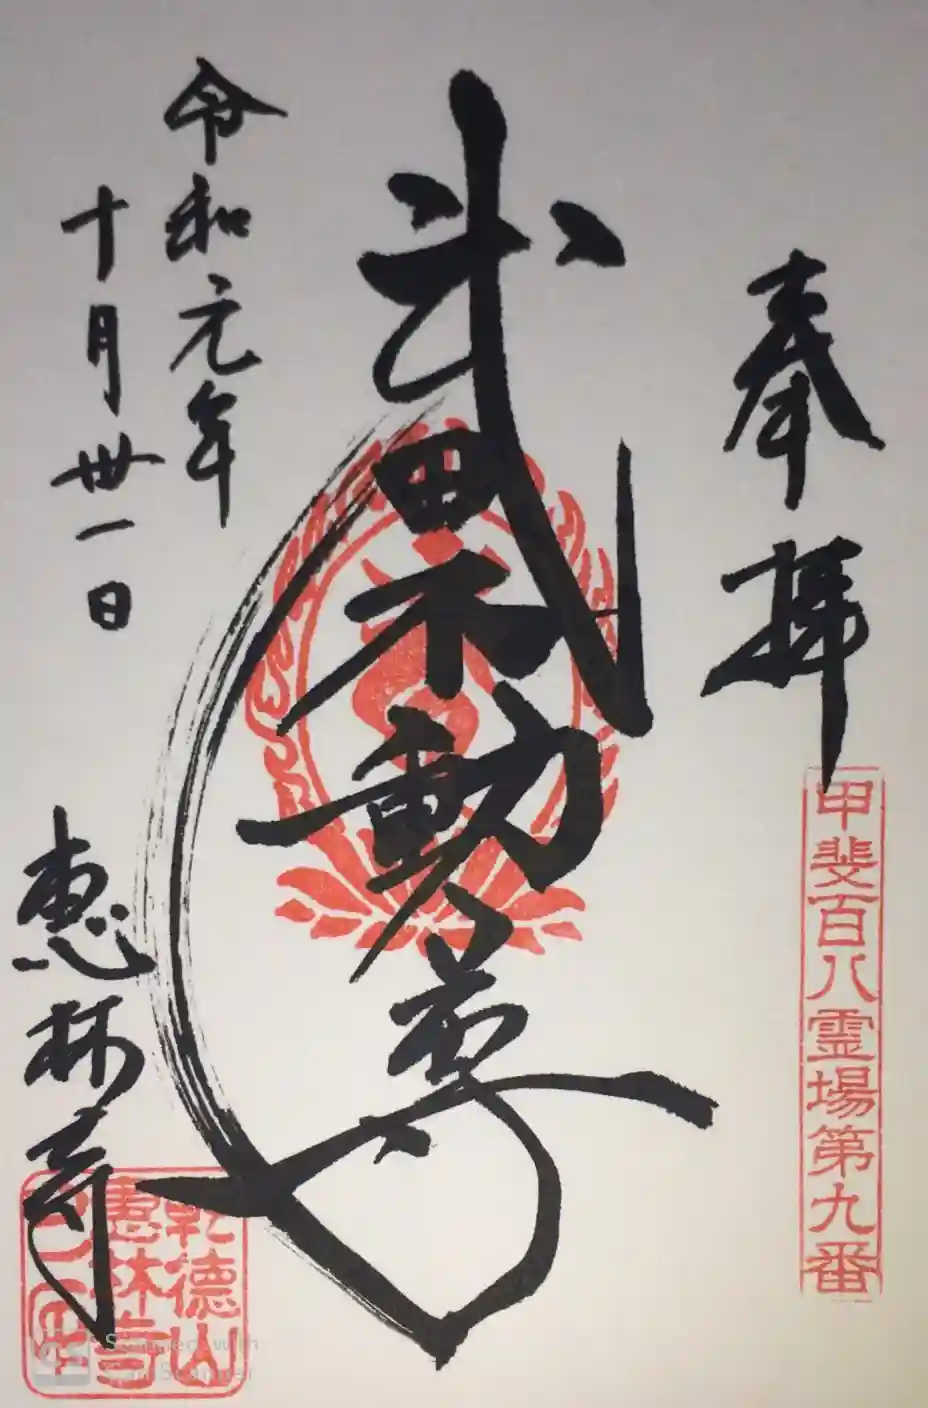 奉拝
甲斐百八霊場第九番
武田不動尊
令和元年
十月卅一日
恵林寺
乾德山
惠林寺
Scanned with
CamScanner